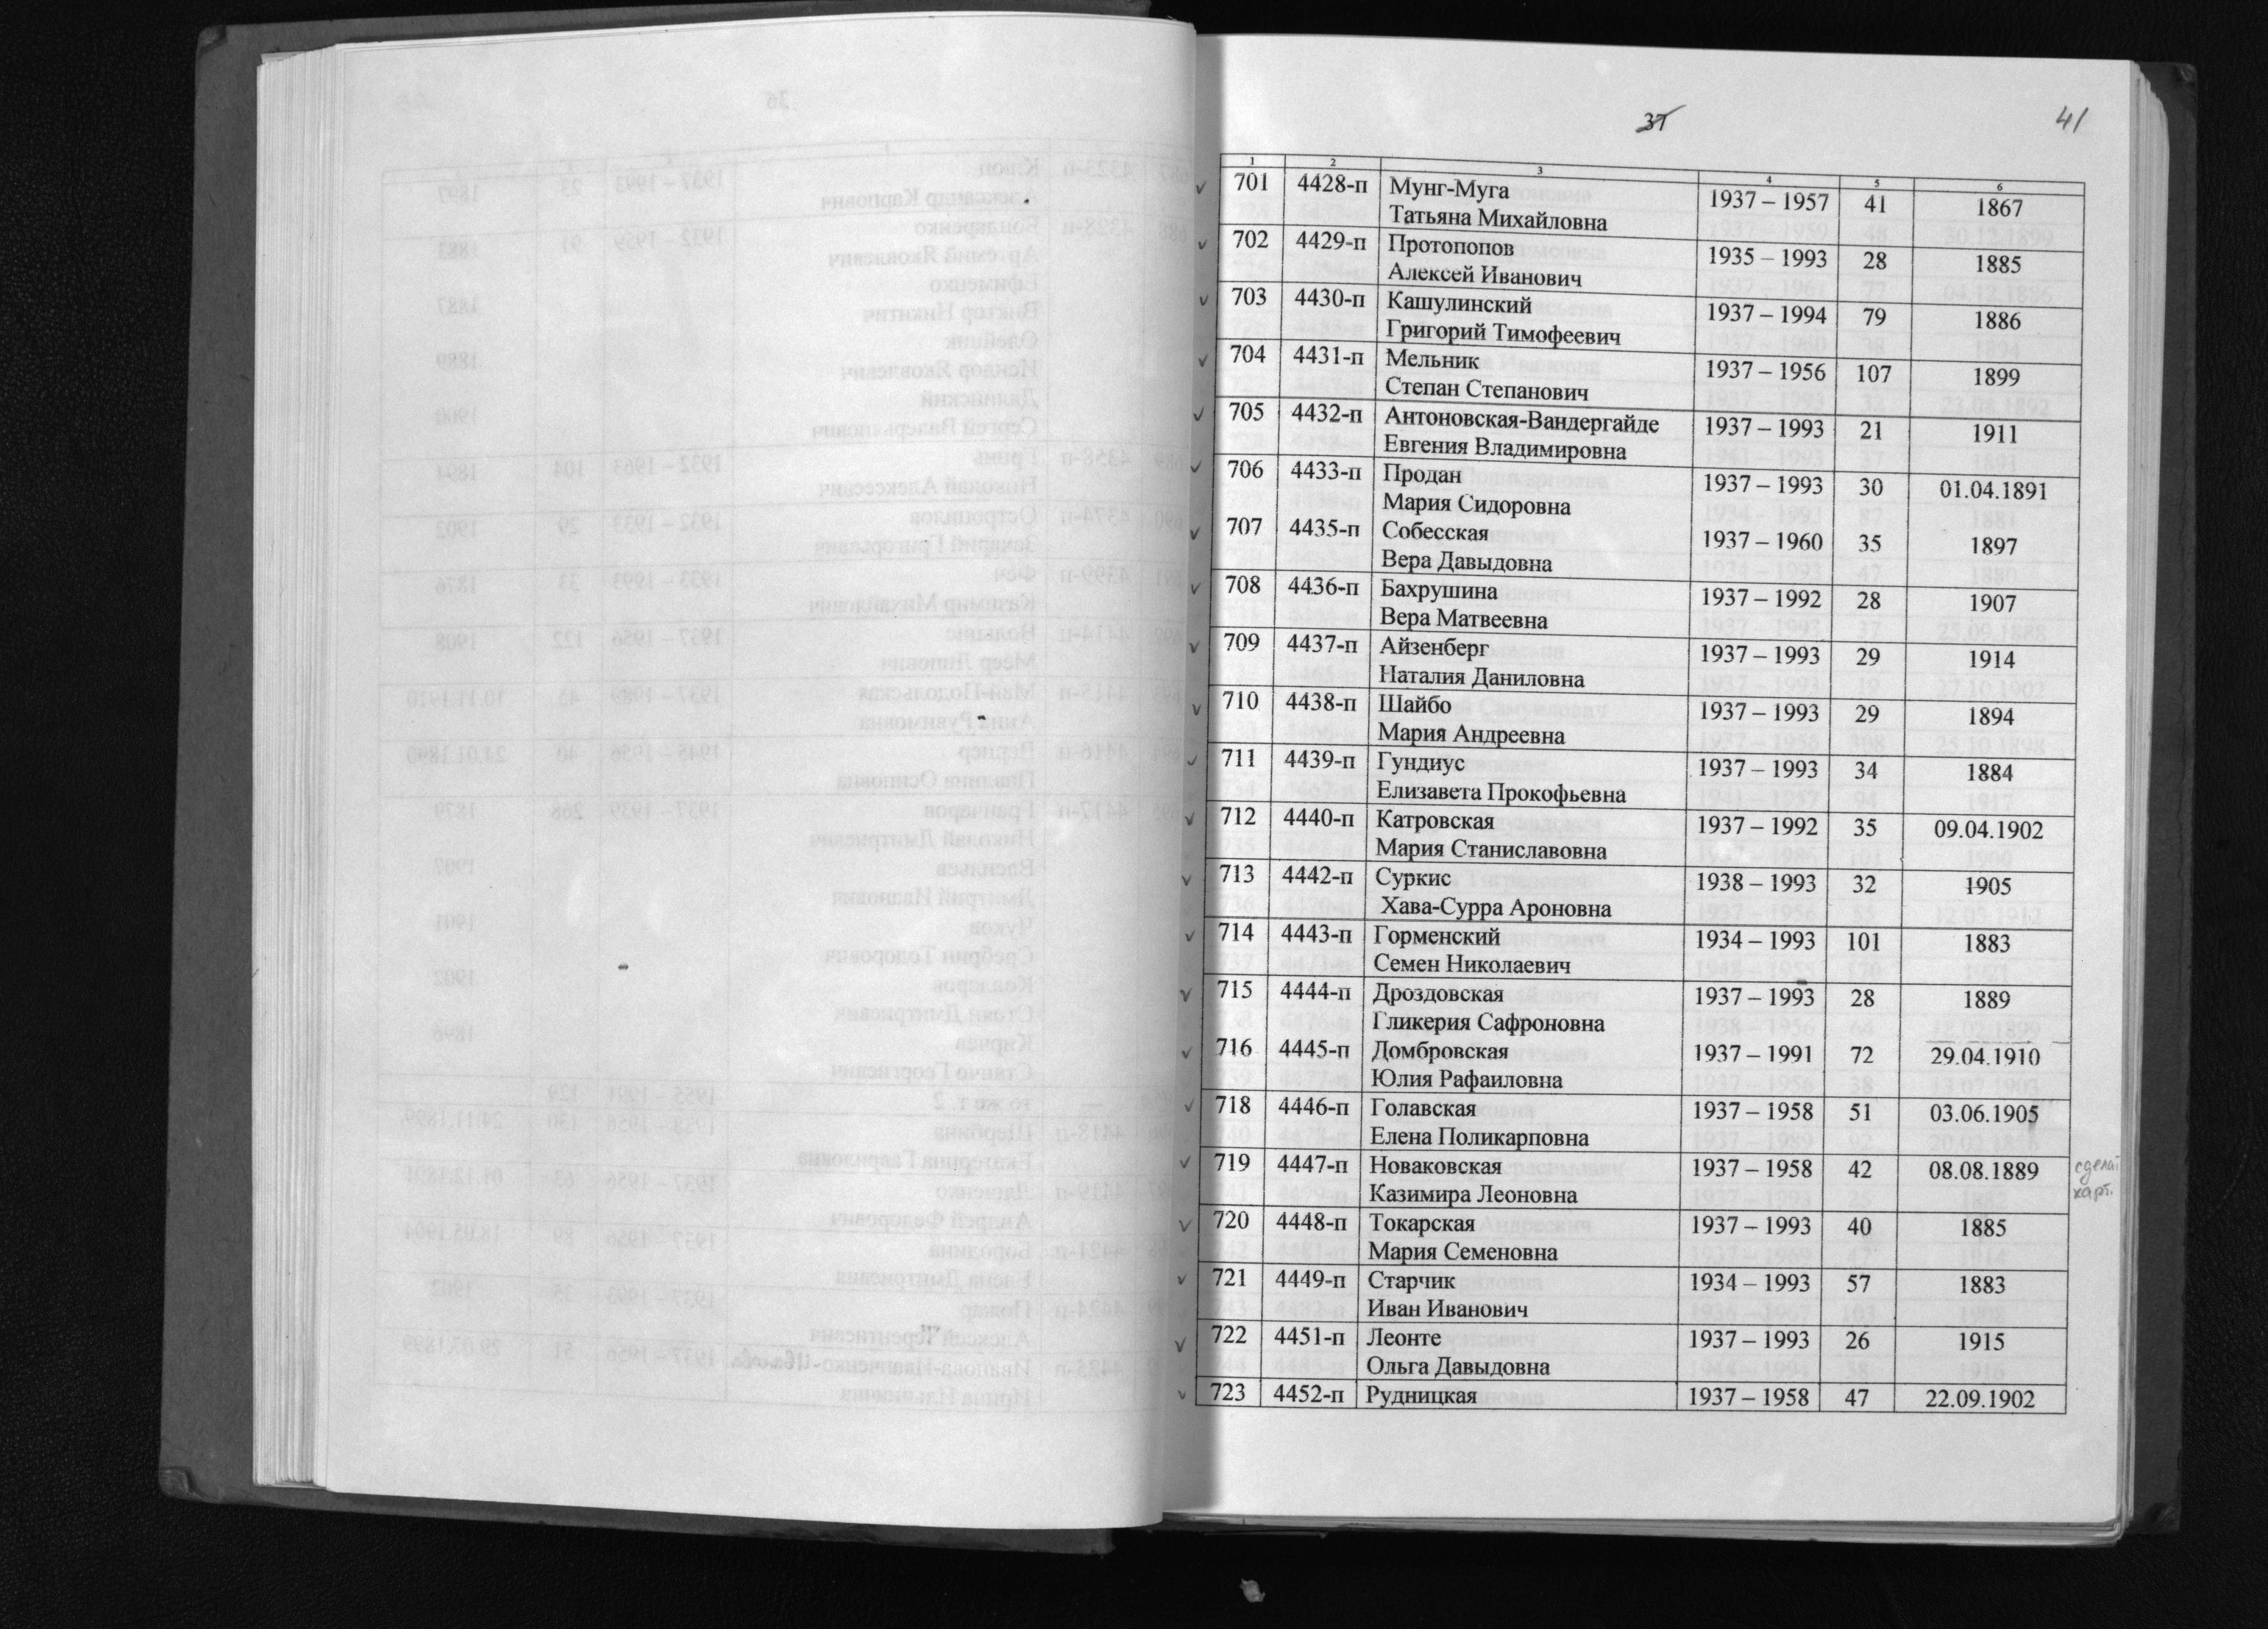 37
41
1 2 3 4 5 6
701 4428-п Мунг-Муга 1937 – 1957 41 1867
Татьяна Михайловна
702 4429-п Протопопов 1935 – 1993 28 1885
Алексей Иванович
703 4430-п Кашулинский 1937 – 1994 79 1886
Григорий Тимофеевич
704 4431-п Мельник 1937 – 1956 107 1899
Степан Степанович
705 4432-п Антоновская-Вандергайде 1937 – 1993 21 1911
Евгения Владимировна
706 4433-п Продан 1937 – 1993 30 01.04.1891
Мария Сидоровна
707 4435-п Собесская 1937 – 1960 35 1897
Вера Давыдовна
708 4436-п Бахрушина 1937 – 1992 28 1907
Вера Матвеевна
709 4437-п Айзенберг 1937 – 1993 29 1914
Наталия Даниловна
710 4438-п Шайбо 1937 – 1993 29 1894
Мария Андреевна
711 4439-п Гундиус 1937 – 1993 34 1884
Елизавета Прокофьевна
712 4440-п Катровская 1937 – 1992 35 09.04.1902
Мария Станиславовна
713 4442-п Суркис 1938 – 1993 32 1905
Хава-Сурра Ароновна
714 4443-п Горменский 1934 – 1993 101 1883
Семен Николаевич
715 4444-п Дроздовская 1937 – 1993 28 1889
Гликерия Сафроновна
716 4445-п Домбровская 1937 – 1991 72 29.04.1910
Юлия Рафаиловна
718 4446-п Голавская 1937 – 1958 51 03.06.1905
Елена Поликарповна
719 4447-п Новаковская 1937 – 1958 42 08.08.1889
Казимира Леоновна
720 4448-п Токарская 1937 – 1993 40 1885
Мария Семеновна
721 4449-п Старчик 1934 – 1993 57 1883
Иван Иванович
722 4451-п Леонте 1937 – 1993 26 1915
Ольга Давыдовна
723 4452-п Рудницкая 1937 – 1958 47 22.09.1902